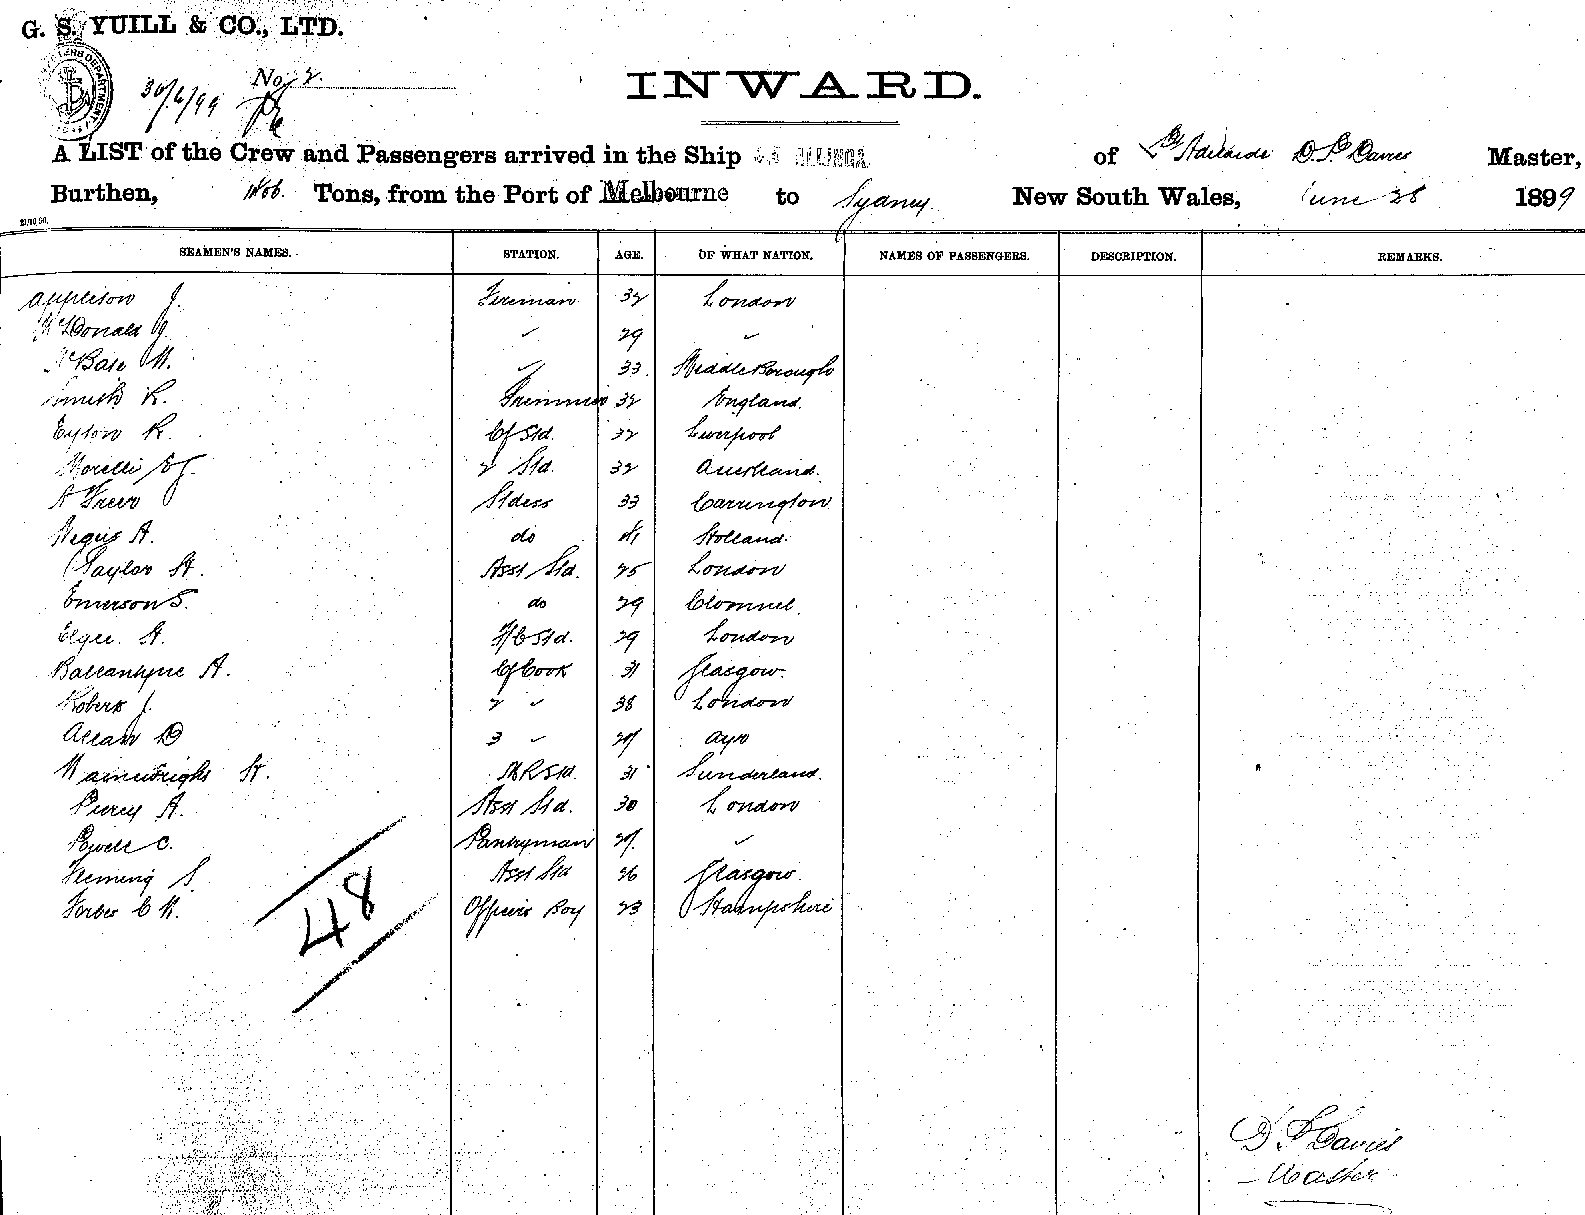 G. S. YUILL & CO., LTD.
30/6/99 No. 2.
INWARD.
A LIST of the Crew and Passengers arrived in the Ship S.S. ALLINGA of Pt Adelaide D. P. Davies Master,
Burthen, Tons, from the Port of Melbourne to Sydney New South Wales, June 28 1899
SEAMEN'S NAMES. STATION. AGE. OF WHAT NATION. NAMES OF PASSENGERS. DESCRIPTION. REMARKS.
Appleson J. Fireman 32 London
McDonald J. " 29 "
McBase M. " 33 Middleborough
Smith R. Trimmer 32 England.
Eyton R. Cf Std. 32 Liverpool
Morelli 2 Std. 32 Auckland.
A Freer Stdess 33 Carrington
Negus A. do 41 Holland.
Taylor H. Asst Std. 25 London
Emerson S. do 29 Clonmel.
Elgee H. F/C Std. 29 London
Ballantyne A. Cf Cook 31 Glasgow.
Roberts J. 2 " 38 London
Allan D 3 " 27 Ayr
Wainwright H. M R Std. 31 Sunderland.
Percy A. Asst Std. 30 London
Powell C. Pantryman 27. "
Fleming S. Asst Std 26 Glasgow.
Forbes C W. Officers Boy 23 Hampshire
48
D P Davies
Master